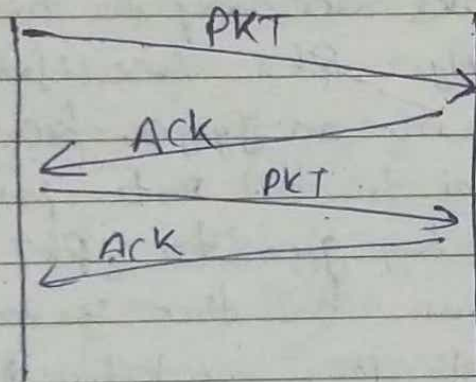 PKT
ACK
PKT
ACK